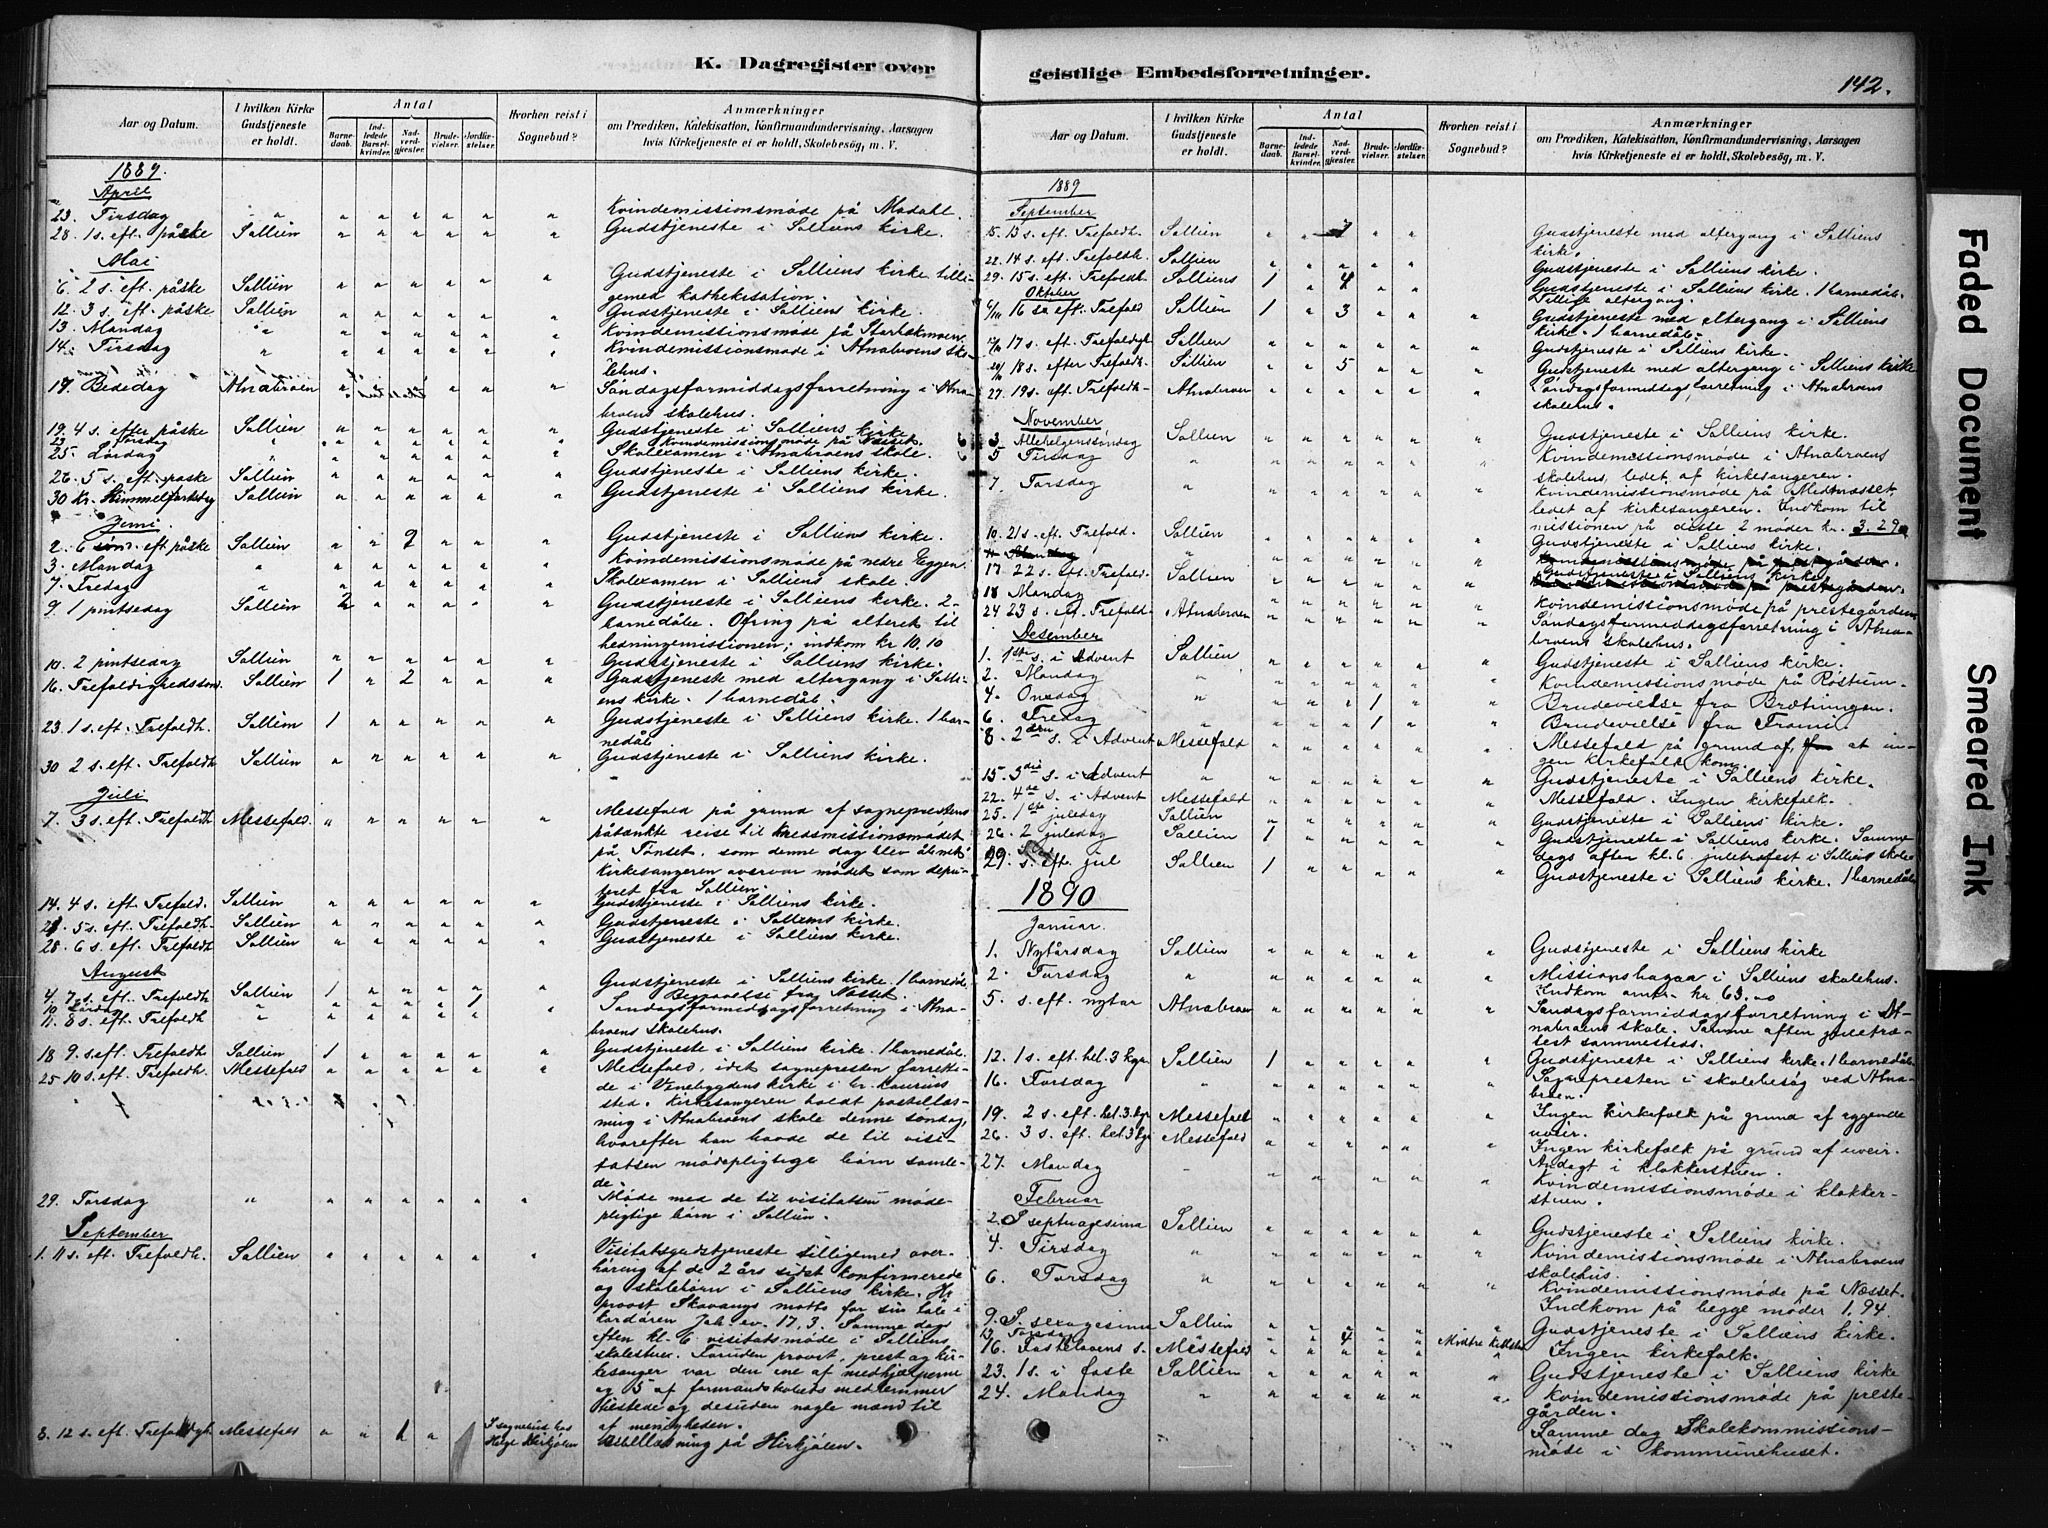 K. Dagregister over
Aar og Datum.
I hvilken Kirke Gudstjeneste er holdt.
Antal
Barnedaab.
Indledede Barselkvinder.
Nadverdgjester.
Brudevielser.
Jordfæstelser.
Hvorhen reist i Sognebud?
Anmærkninger
om Prædiken, Katekisation, Konfirmandundervisning, Aarsagen
hvis Kirketjeneste ei er holdt, Skolebesög, m. V.
1889.
April
23. Tirsdag " " " " " " " Kvindemissionsmøde på Modahl.
28. 1 s. eft. påske Sollien " " " " " " Gudstjeneste i Solliens kirke.
Mai
6. 2 s. eft. påske Sollien " " " " " " Gudstjeneste i Solliens kirke tilli-
gemed kathekisation.
12. 3 s. eft. påske Sollien " " " " " " Gudstjeneste i Solliens kirke.
13. Mandag " " " " " " " Kvindemissionsmøde på
14. Tirsdag " " " " " " " Kvindemissionsmøde i Atnabroens sko-
lehus.
17 Bededag Atnabroen " " " " Søndagsformiddagsforretning i Atna-
broens skolehus.
19. 4 s. efter påske Sollien " " " " " " Gudstjeneste i Solliens kirke.
23 Torsdag " " " " " " Kvindemissionsmøde på Næsset.
25. Lørdag " " " " " " " Skolexamen i Atnabroens skole.
26. 5 s. eft. påske Sollien " " " " " Gudstjeneste i Solliens kirke.
30 Kr. Himmelfartsdag Sollien " " " " " Gudstjeneste i Solliens kirke.
Juni.
2. 6 sønd. eft påske Sollien " " 2 " " " Gudstjeneste i Solliens kirke.
3. Mandag " " " " " " Kvindemissionsmøde på nedre Eggen.
7. Fredag " " " " " " Skolexamen i Solliens skole.
9. 1 pintsedag Sollien 2 " " " " " Gudstjeneste i Solliens kirke. 2-
barnedåbe. Ofring på alteret til
hedningemissionen; indkom kr 10.10
10. 2 pintsedag Sollien " " " " " " Gudstjeneste i Solliens kirke.
16. Trefoldighedssøn. Sollien 1 " 2 " " " Gudstjeneste med altergang i Solli-
ens kirke. 1 barnedåb.
23. 1 s. eft. Trefoldh. Sollien 1 " " " " " Gudstjeneste i Solliens kirke. 1 bar-
nedåb
30 2 s. eft. Trefoldh. Sollien " " " " " " Gudstjeneste i Solliens kirke.
Juli
7. 3 s. eft. Trefoldh. Messefald. " " " " " " Messefald på grund af sogneprestens
påtænkte reise til kredsmissionsmødet
på Tønset, som denne dag blev åbnet.
Kirkesangeren overvar mødet som depu-
teret fra Sollien.
14. 4 s. eft. Trefold. Sollien " " " " " " Gudstjeneste i Solliens kirke.
21. 5 s. eft. Trefoldh. Sollien " " " " " " Gudstjeneste i Solliens kirke.
28. 6 s. eft. Trefoldh Sollien " " " " " " Gudstjeneste i Solliens kirke.
August
4. 7 s. eft. Trefoldh Sollien 1 " " " " " Gudstjeneste i Solliens kirke. 1 barnedåb.
10 Lørdag " " " " " 1 Begravelse fra Næsset.
11. 8 s. eft. Trefoldh " " " " " " " Søndagsformiddagsforretning i Atna-
broens skolehus.
18 9. s. eft. Trefoldh Sollien 1 " " " " " Gudstjeneste i Solliens kirke. 1 barnedåb.
25 10 s. eft. Trefoldh. Messefald " " " " " " Messefald, idet sognepresten forrett-
de i Venebygdens kirke i hr. Laurins
sted. Kirkesangeren holdt postillæs-
ning i Atnabroens skole denne søndag,
hvorefter han havde de til visi-
tatsen mødepligtige børn samle-
de.
29. Torsdag " " " " " " " Møde med de til visitatsen møde-
pligtige børn i Sollien.
September
1. 11 s. eft. Trefoldh. Sollien " " " " " Visitatsgudstjeneste tilligemed over-
høring af de 2 års sidst konfirmerede
og skolebørn i Solliens kirke. Hr.
provst Skavangs motto for sin tale i
kordøren Joh. ev. 17, 3. Samme dag
eften kl. 6 visitatsmøde i Solliens
skolestue. Foruden provst, prest og kir-
kesanger var den ene af medhjelperne
og 5 af formandskabets medlemmer
tilstede og desuden nogle mænd til
af menigheden.
8. 12 s. eft. Trefoldigh Messefald " " 1 " I sognebud hos Helge Hirkjølen læsning på Hirkjølen.
geistlige Embedsforretninger.
142.
Aar og Datum.
I hvilken Kirke Gudstjeneste er holdt.
Antal
Barnedaab.
Indledede Barselkvinder.
Nadverdgjester.
Brudevielser.
Jordfæstelser.
Hvorhen reist i Sognebud?
Anmærkninger
om Prædiken, Katekisation, Konfirmandundervisning, Aarsagen
hvis Kirketjeneste ei er holdt, Skolebesög, m. V.
1889
September
15. 13 s. eft. Trefoldh. Sollien " " 7 " " Gudstjeneste med altergang i Solliens
kirke.
22. 14 s. eft. Trefoldh. Sollien " " " " " Gudstjeneste i Solliens kirke.
29. 15 s. eft. Trefoldh. Solliens 1 " 4 " " Gudstjeneste i Solliens kirke. 1 barnedåb.
Tillige altergang.
Oktober
6/10 16 sø eft. Trefold Sollien 1 " 3 " " " Gudstjeneste med altergang i Solliens
kirke. 1 barnedåb.
13/10 17 s. eft. Trefoldigh Sollien " " " " " " Gudstjeneste i Solliens kirke.
20/10 18 s. efter Trefoldh. Sollien " " 5 " " " Gudstjeneste med altergang i Solliens kirke
27. 19 s. eft. Trefoldh- Atnabroen " " " " " " Søndagsformiddagsforretning i Atnabroens
skolehus.
November
3. Allehelgensøndag Sollien " " " " " " Gudstjeneste i Solliens kirke.
5 Tirsdag " " " " " " " Kvindemissionsmøde i Atnabroens
skolehus, ledet af kirkesangeren.
7. Torsdag " " " " " " " Kvindemissionsmøde på Midtnæsset,
ledet af kirkesangeren. Indkom til
missionen på disse 2 møder kr. 3.29
10. 21 s. eft. Trefold. Sollien " " " " " " Gudstjeneste i Solliens kirke.
11 Mandag " Kvindemissionsmøde på prestegården.
17. 22 s. eft. Trefold. Sollien " " " " " " Gudstjeneste i Solliens kirke
18 Mandag " " " " " Kvindemissionsmøde på prestegården
24 23 s. eft. Trefold. Atnabroen " " " " " " Søndagsformiddagsforretning i Atna-
broens skolehus.
Desember
1. 1ste s. i Advent Sollien " " " " " " Gudstjeneste i Solliens kirke.
2. Mandag " " " " " " " Kvindemissionsmøde på Røstum.
4. Onsdag " " " " 1 " " Brudevielse fra Brætningen.
6. Fredag " " " " 1 " " Brudevielse fra Tromi.
8. 2den s. i Advent Messefald " " " " " " Messefald på grund af, at in-
gen kirkefolk kom.
15. 3die s. i Advent " " " " " " " Gudstjeneste i Solliens kirke.
22. 4de s. i Advent Messefald " " " " " " Messefald. Ingen kirkefolk.
25. 1ste juledag Sollien " " " " " " Gudstjeneste i Solliens kirke.
26. 2 juledag Sollien 1 " " " " " Gudstjeneste i Solliens kirke. Samme
dags aften kl. 6 juletræfest i Solliens skole.
29. s. eft. jul Sollien 1 " " " " " Gudstjeneste i Solliens kirke. 1 barnedåb
1890
Januar.
1. Nytårsdag Sollien " " " " " " Gudstjeneste i Solliens kirke
2. Torsdag " " " " " " " Missionsbasar i Solliens skolehus.
Indkom omkr. kr 63.00
5. s. eft. nytår Atnabroen " " " " " " Søndagsformiddagsforretning i At-
nabroens skole. Samme aften juletræ-
fest sammesteds.
12. 1 s. eft. hel. 3 kgr. Sollien 1 " " " " " Gudstjeneste i Solliens kirke. 1 barnedåb.
16. Torsdag " " " " " " " Sognepresten i skolebesøg ved Atna-
broen.
19. 2 s. eft. hel. 3. kgr. Messefald " " " " " " Ingen kirkefolk på grund af rygende
uveir.
26. 3 s. eft. hel 3 kgr Messefald " " " " " " Ingen kirkefolk på grund af uveir.
Andagt i klokkerstuen.
27. Mandag " " " " " " " Kvindemissionsmøde i klokker-
stuen.
Februar
2. S. septuagesima Sollien " " " " " " Gudstjeneste i Solliens kirke.
4. Tirsdag " " " " " " " Kvindemissionsmøde i Atnabroens
skolehus.
6. Torsdag " " " " " " " Kvindemissionsmøde på Næsset.
Indkom på begge møder 1.94
9. S. sexagesima Sollien " " " " " Gudstjeneste i Solliens kirke.
13 Torsdag " " 4 " " Midtre
16. Fastelavens s. Messefald " " " " " " Ingen kirkefolk.
23. 1 s. i faste Sollien " " " " " Gudstjeneste i Solliens kirke
24. Mandag " " " " " " " Kvindemissionsmøde på preste-
gården.
Samme dag Skolekommissions-
møde i kommunehuset.
Faded Document
Smeared Ink